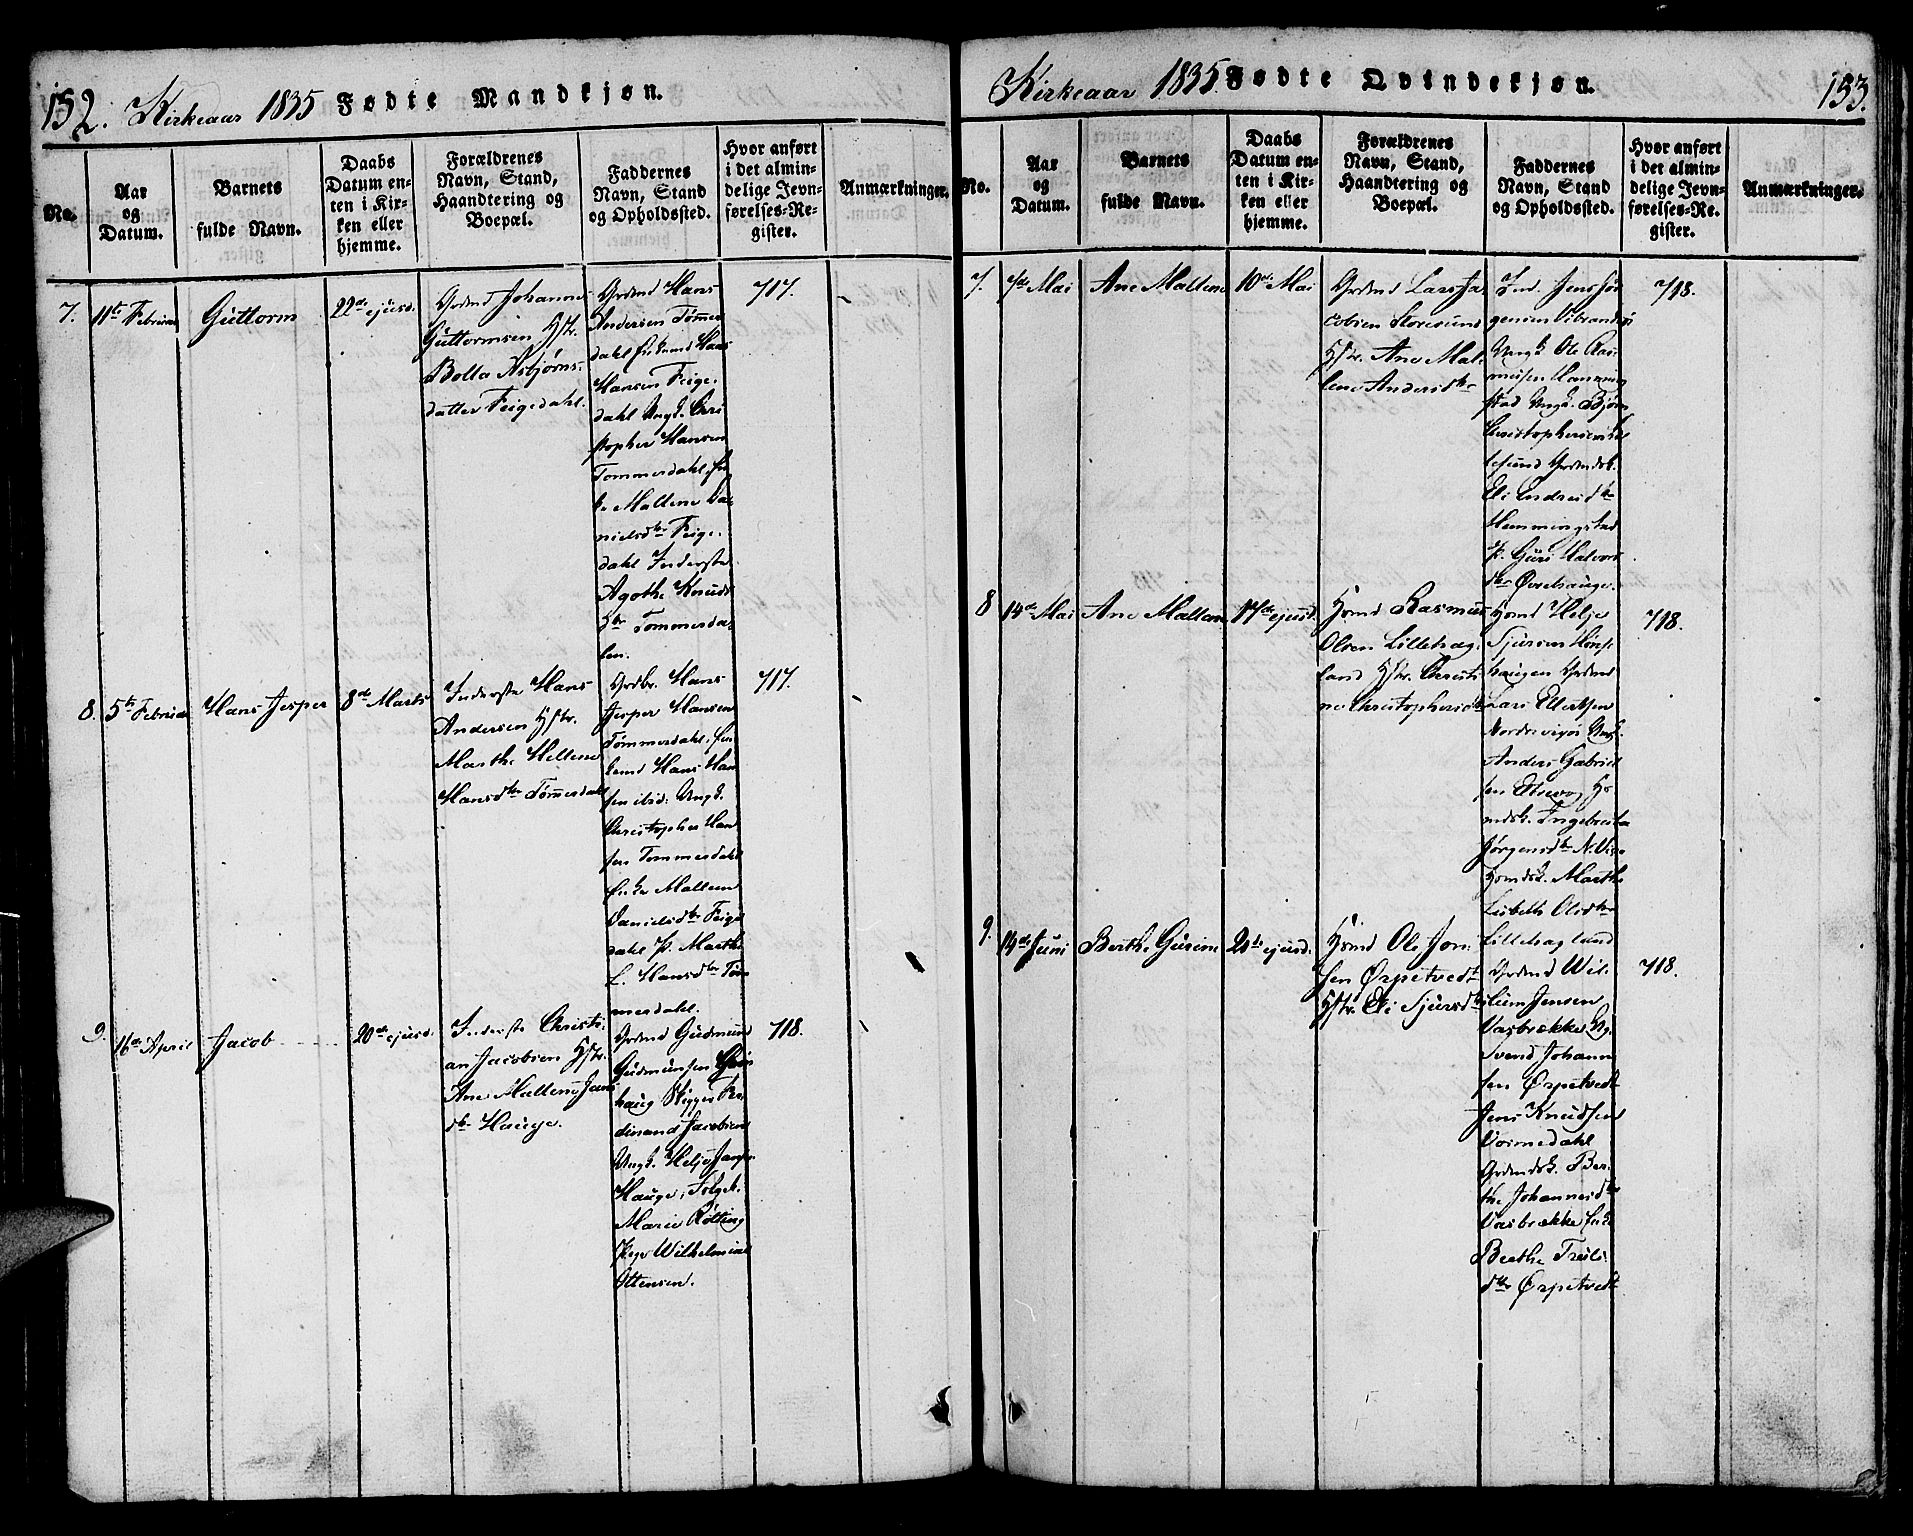 152. Kirkeaar 1835 Fødte Mandkjøn.
No.
Aar
og
Datum.
Barnets
fulde Navn.
Daabs
Datum en-
ten i Kir-
ken eller
hjemme.
Forældrenes
Navn, Stand,
Haandtering og
Boepæl.
Faddernes
Navn, Stand
og Opholdssted.
Hvor anført
i det almin-
delige Jevn-
førelses-Re-
gister.
Anmærkninger.
7.
11te Februar
Guttorm
22de ejusd.
Grdmd Johannes
Guttormsen Hstr.
Bolla Asbjørns-
datter Feigedahl.
Grdmd Hans
Andersen Tømmer
dahl Hans
Hansen Feige-
dahl Ungk. Chri
stopher Hansen
Tommerdahl,
Mallene Da-
nielsdtr Feige-
dahl Inderste
Agothe Knuds
dtr Tommerda-
len.
717.
8.
5te Februar
Hans Jesper
8de Marts
Inderste Hans
Andersen Hstr.
Marthe Hellene
Hansdtr Tømmerdahl
Grdbr. Hans
Jesper Hansen
Tømmerdahl,
Hans Han
sen ibid: Ungk.
Christopher Han
sen Tommerdahl
Mallene
Danielsdtr Feige
dahl P. Marthe
L. Hansdtr Tøm
merdahl.
717.
9.
16de April
Jacob
20de ejusd.
Inderste Christi-
an Jacobsen Hstr.
Ane Mallene Jans
dtr Hauge.
Grdmd Gudmund
Gudmunsen
haug Skipper Fer
dinand Jacobsen
Ungk. Helje Jansen
Hauge,
Marie Rølting
Pige Wilhelmine
Ottensen.
718.
Kirkeaar 1835 Fødte Qvindekjøn.
153.
No.
Aar
og
Datum.
Barnets
fulde Navn.
Daabs
Datum en-
ten i Kir-
ken eller
hjemme.
Forældrenes
Navn, Stand,
Haandtering og
Boepæl.
Faddernes
Navn, Stand
og Opholdssted.
Hvor anført
i det almin-
delige Jevn-
førelses-Re-
gister.
Anmærkninger.
7.
7de Mai
Ane Mallene
10de Mai
Grdmd Lars Ja
cobsen Storesund
Hstr. Ane Mal-
lene Andersdtr
Ind. Jens Jør
gensen Vibrandsø
Ungk Ole Ras-
musen Hemming
stad Ungk. Bjørn
Christophersen
lesund Grdmdsk.
Eli Endresdtr
Hemmingstad
P. Guri Halvors
dtr Øvrehauge.
718.
8
14de Mai
Ane Mallene
17de ejusd.
Hsmd Rasmus
Olsen Lillehag-
land Hstr. Christi
ne Christophersdtr
Hsmd Helje
Sjursen Hønse
haugen Grdmd
Lars Ellertsen
Nordrevigor Ungk.
Anders Gabriel
sen
mdsk. Ingeborg
Jørgensdtr N. Vigo
Hsmdsk. Marthe
Lisbeth Olsdtr
Lillehagland
718.
9.
14de Juni
Berthe Gurine
20de ejusd.
Hsmd Ole Jon-
sen Ørpetvedt
Hstr. Eli Sjursdtr
Grdmd Wil-
lum Jensen
Vasbrække Ung.
Svend Johann
sen Ørpetvedt
Jens Knudsen
Vormedahl
Grdmdsk. Ber-
the Johannesdtr
Vasbrække
Berthe Troels-
dtr Ørpetvedt
718.